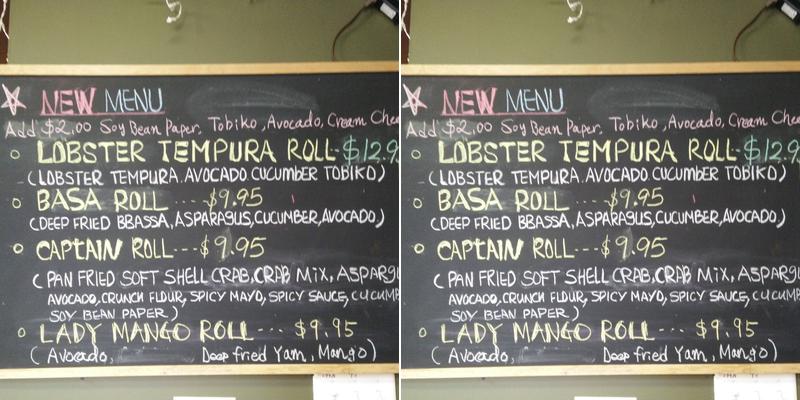 NEW MENU
Add $2.00 Soy Bean Paper, Tobiko, Avocado, Cream Chee
LOBSTER TEMPURA ROLL--$12.9
(LOBSTER TEMPURA. AVOCADO. CUCUMBER TOBIKO)
BASA ROLL ----$9.95
(DEEP FRIED BBASSA, ASPARAGUS, CUCUMBER, AVOCADO)
CAPTAIN ROLL ----$9.95
(PAN FRIED SOFT SHELL CRAB, CRAB MIX, ASPARGU
AVOCADO, CRUNCH FLOUR, SPICY MAYO, SPICY SAUCE, CUCUMB
SOY BEAN PAPER)
LADY MANGO ROLL --- $9.95
(Avocado, Deep fried Yam, Mango)
NEW MENU
Add $2.00 Soy Bean Paper, Tobiko, Avocado, Cream Chee
LOBSTER TEMPURA ROLL--$12.9
(LOBSTER TEMPURA. AVOCADO. CUCUMBER TOBIKO)
BASA ROLL ----$9.95
(DEEP FRIED BBASSA, ASPARAGUS, CUCUMBER, AVOCADO)
CAPTAIN ROLL ----$9.95
(PAN FRIED SOFT SHELL CRAB, CRAB MIX, ASPARGU
AVOCADO, CRUNCH FLOUR, SPICY MAYO, SPICY SAUCE, CUCUMB
SOY BEAN PAPER)
LADY MANGO ROLL --- $9.95
(Avocado, Deep fried Yam, Mango)